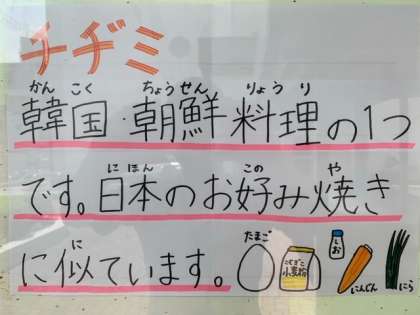 チヂミ
かんこく ちょうせん りょうり
韓国・朝鮮料理の1つ
にほん この や
です。日本のお好み焼き
に たまご
に似ています。
しお
こむぎこ
小麦粉
にんじん にら